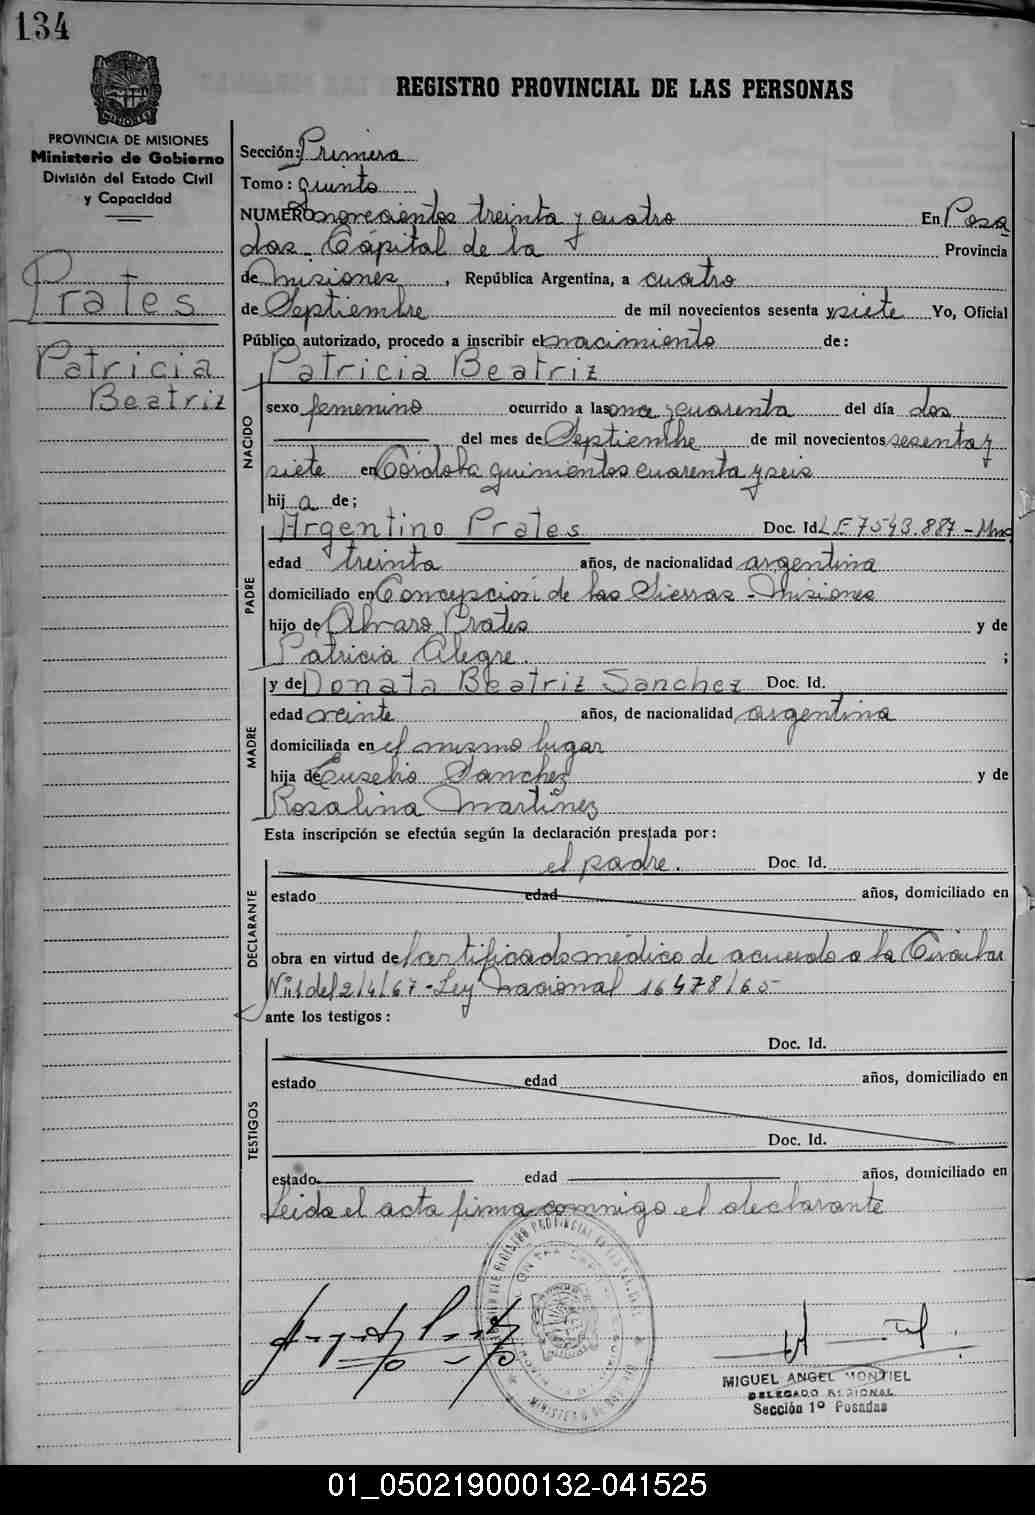 134
PROVINCIA DE MISIONES
Ministerio de Gobierno
División del Estado Civil
y Capacidad
Prates
Patricia
Beatriz
REGISTRO PROVINCIAL DE LAS PERSONAS
Sección: Primera
Tomo: quinto
NUMERO novecientos treinta y cuatro En Posa
das. Capital de la Provincia
de Misiones, República Argentina, a cuatro
de Septiembre de mil novecientos sesenta y siete Yo, Oficial
Público autorizado, procedo a inscribir el nacimiento de:
Patricia Beatriz
NACIDO
sexo femenino ocurrido a las once y cuarenta del día dos
del mes de Septiembre de mil novecientos sesenta y
siete en Córdoba quinientos cuarenta y seis
hij a de;
PADRE
Argentino Prates Doc. Id. L.E. 7.543.887 -
edad treinta años, de nacionalidad argentina
domiciliado en Concepción de las Sierras - Misiones
hijo de Alvaro Prates y de
Patricia Alegre. ;
MADRE
y de Donata Beatriz Sanchez Doc. Id.
edad veinte años, de nacionalidad argentina
domiciliada en el mismo lugar
hija de Eusebio Sanchez y de
Rosalina Martinez
Esta inscripción se efectúa según la declaración prestada por:
DECLARANTE
el padre. Doc. Id.
estado edad años, domiciliado en
obra en virtud de certificado médico de acuerdo a la Circular
Nº 1 del 2/4/67 - Ley Nacional 16478/65
ante los testigos:
TESTIGOS
Doc. Id.
estado edad años, domiciliado en
Doc. Id.
estado edad años, domiciliado en
Leida el acta firma conmigo el declarante
MIGUEL ANGEL MONTIEL
DELEGADO REGIONAL
Sección 1º Posadas
01_050219000132-041525